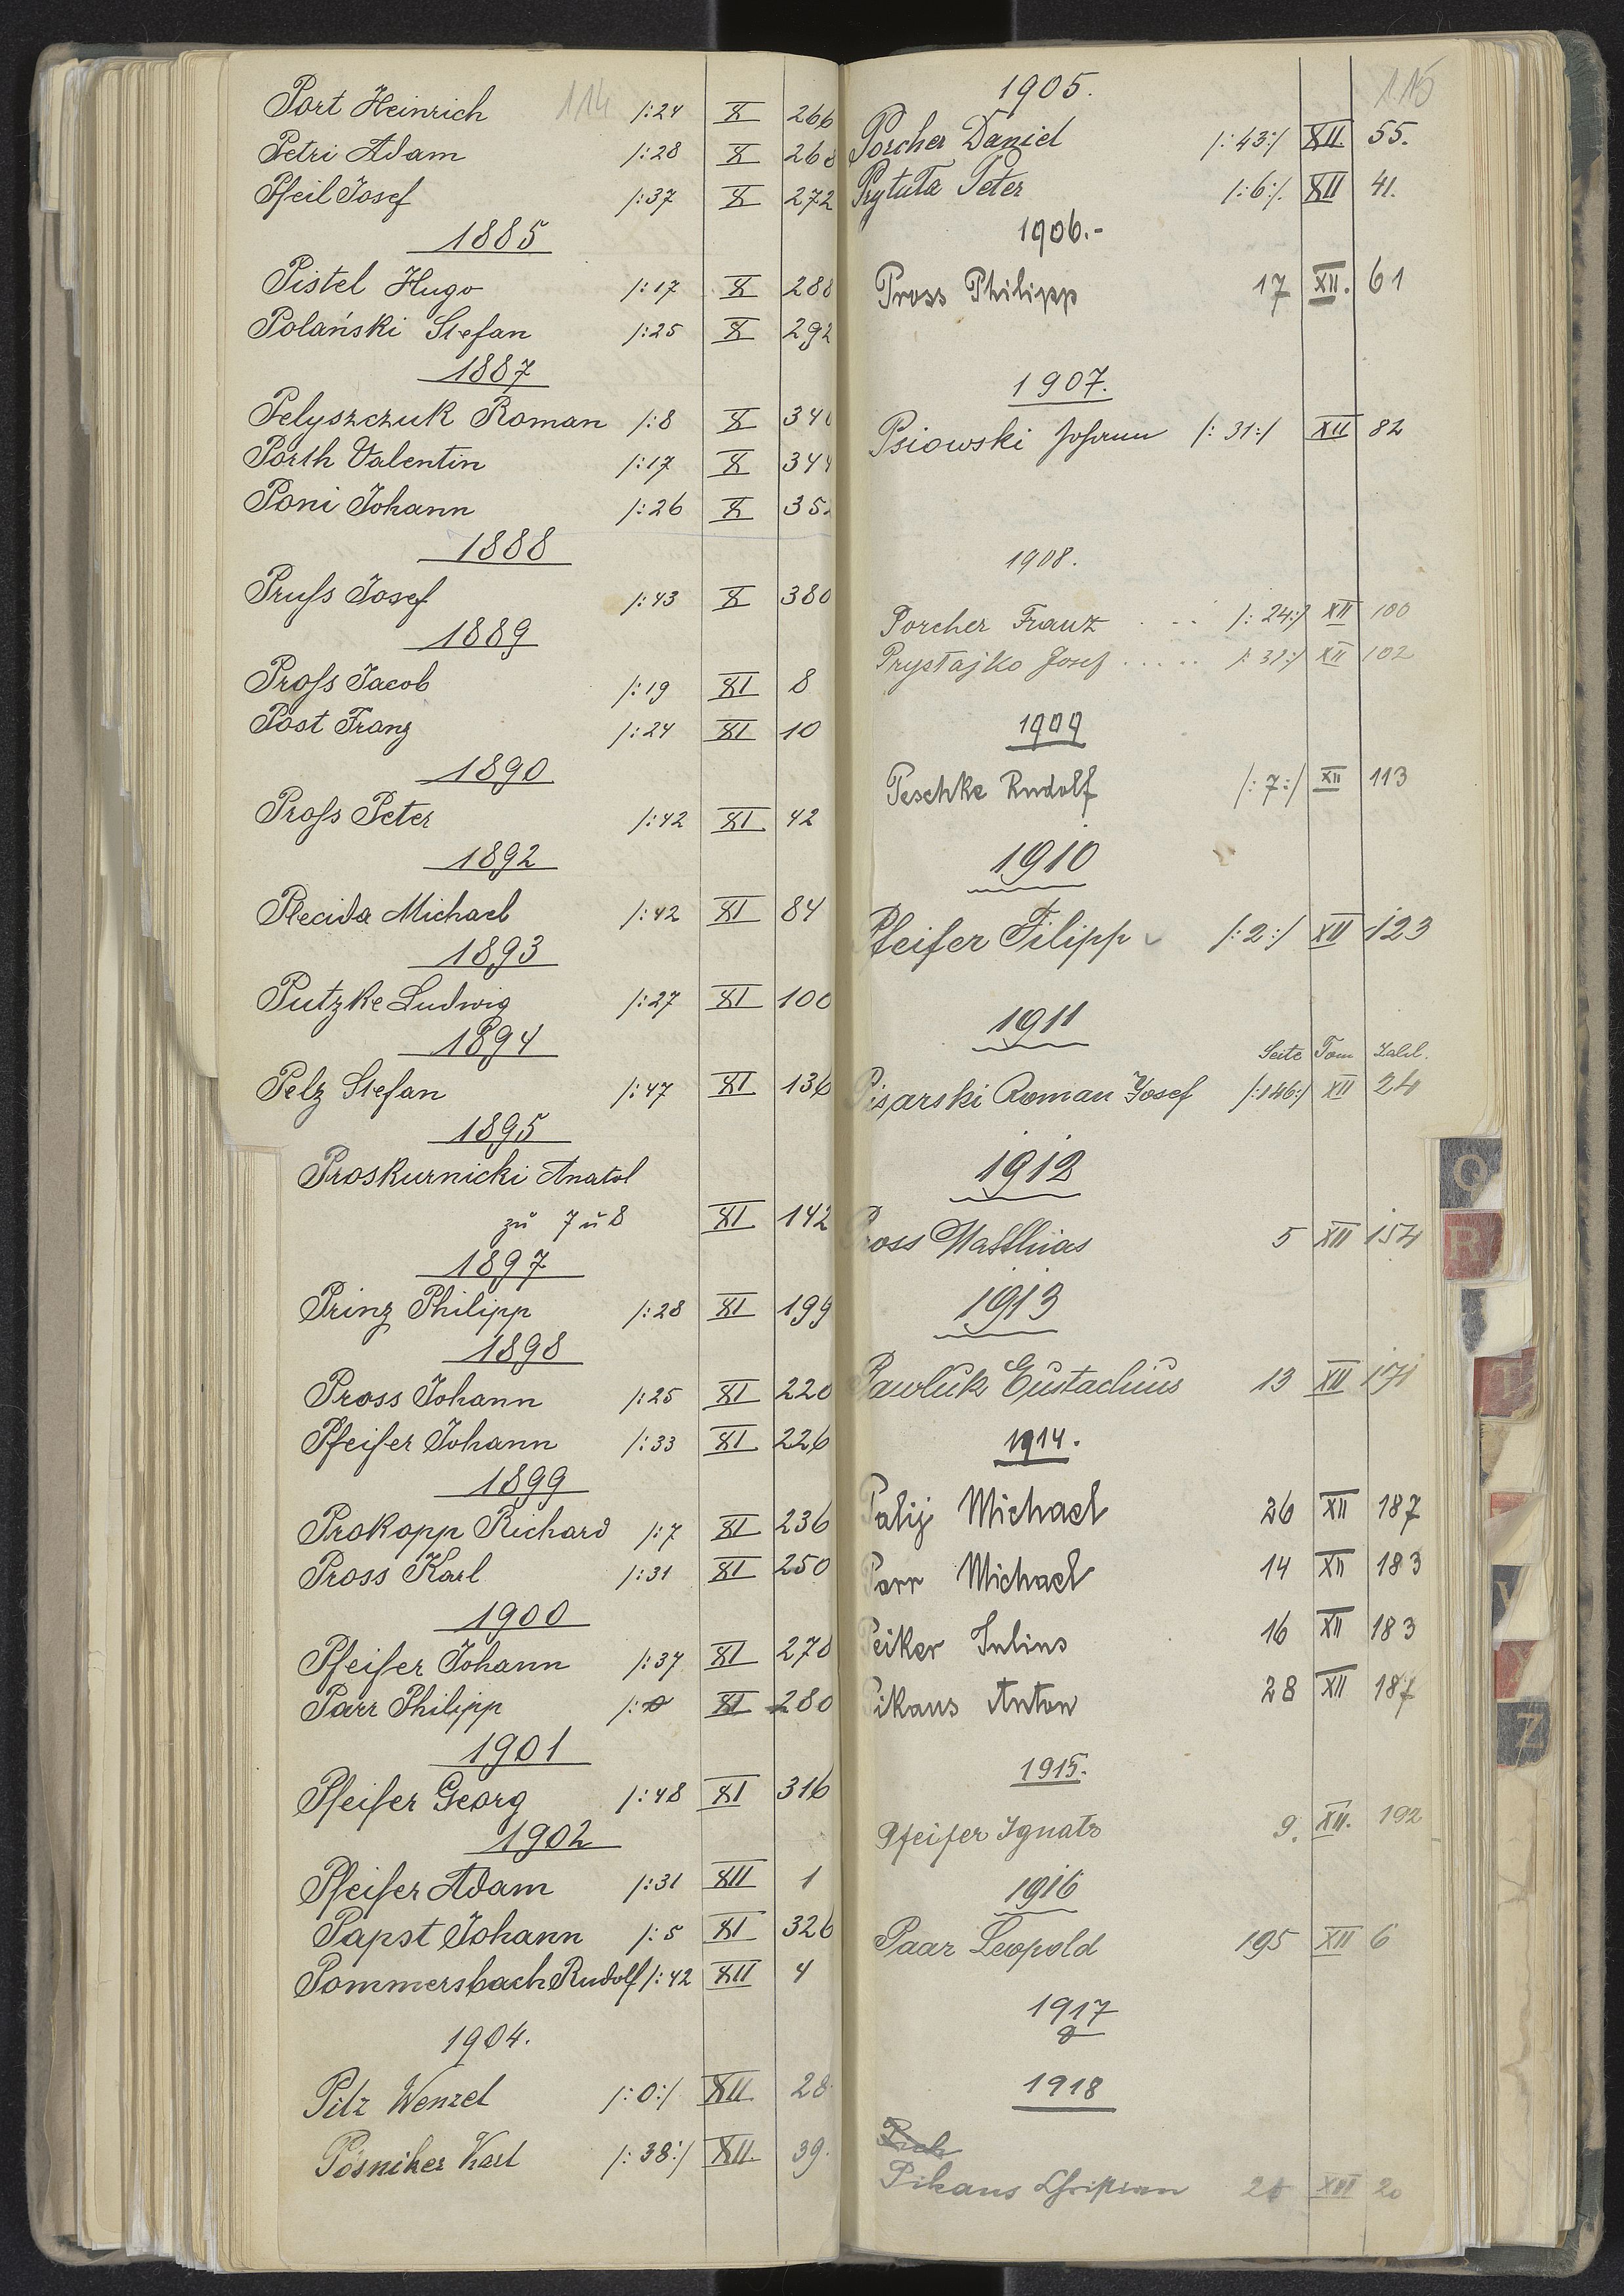 114
Port Heinrich /:24 X 266
Petri Adam /:28 X 268
Pfeil Josef /:37 X 272
1885
Pistel Hugo /:17 X 288
Polański Stefan /:25 X 292
1887
Pelyszczuk Roman /:8 X 340
Porth Valentin /:17 X 344
Poni Johann /:26 X 352
1888
Pruſs Josef /:43 X 380
1889
Proſs Jacob /:19 XI 8
Post Franz /:24 XI 10
1890
Proſs Peter /:42 XI 42
1892
Plecida Michael /:42 XI 84
1893
Putzke Ludwig /:27 XI 100
1894
Pelz Stefan /:47 XI 136
1895
Proskurnicki Anatol
zu 7 u 8 XI 142
1897
Prinz Philipp /:28 XI 199
1898
Pross Johann /:25 XI 220
Pfeifer Johann /:33 XI 226
1899
Prokopp Richard /:7 XI 236
Pross Karl /:31 XI 250
1900
Pfeifer Johann /:37 XI 278
Parr Philipp /:0 XI 280
1901
Pfeifer Georg /:48 XI 316
1902
Pfeifer Adam /:31 XII 1
Papst Johann /:5 XI 326
Pommersbach Rudolf /:42 XII 4
1904.
Pilz Wenzel /:0:/ XII 28
Pösniker Karl /:38:/ XII. 39.
115
1905.
Porcher Daniel /:43:/ XII. 55.
Prytuta Peter /:6:/. XII 41.
1906.-
Pross Philipp 17 XII. 61
1907.
Psiowski Johann /:31:/ XII 82
1908.
Porcher Franz /:24:/ XII 100
Prystajko Josef /:31:/ XII 102
1909
Peschke Rudolf /:7:/ XII 113
1910
Pfeifer Filipp /:2:/ XII 123
1911
Seite Tom Zahl.
Pisarski Roman Josef /:146:/ XII 24
1912
Pross Matthias 5 XII 154
1913
Pawluk Eustachius 13 XII 171
1914.
Palij Michael 26 XII 187
Parr Michael 14 XII 183
Peiker Julius 16 XII 183
Pikaus Anton 28 XII 187
1915.
Pfeifer Ignatz 9. XII. 192
1916
Paar Leopold 195 XII 6
1917
0
1918
Pikaus Christian XIII 20
Q
R
Z